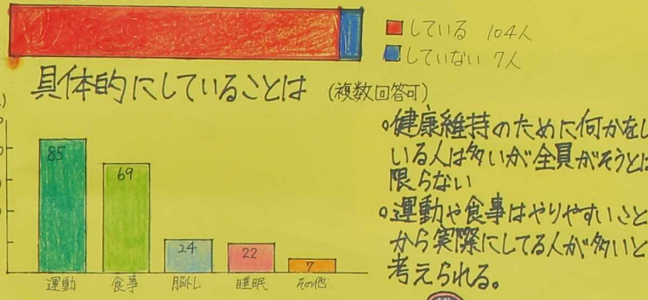 している 104人
していない 7人
具体的にしていることは (複数回答可)
85
69
24
22
7
運動 食事 脳トレ 睡眠 その他
健康維持のために何かをし
いる人は多いが全員がそうとは
限らない
運動や食事はやりやすいこと
から実際にしてる人が多いと
考えられる。